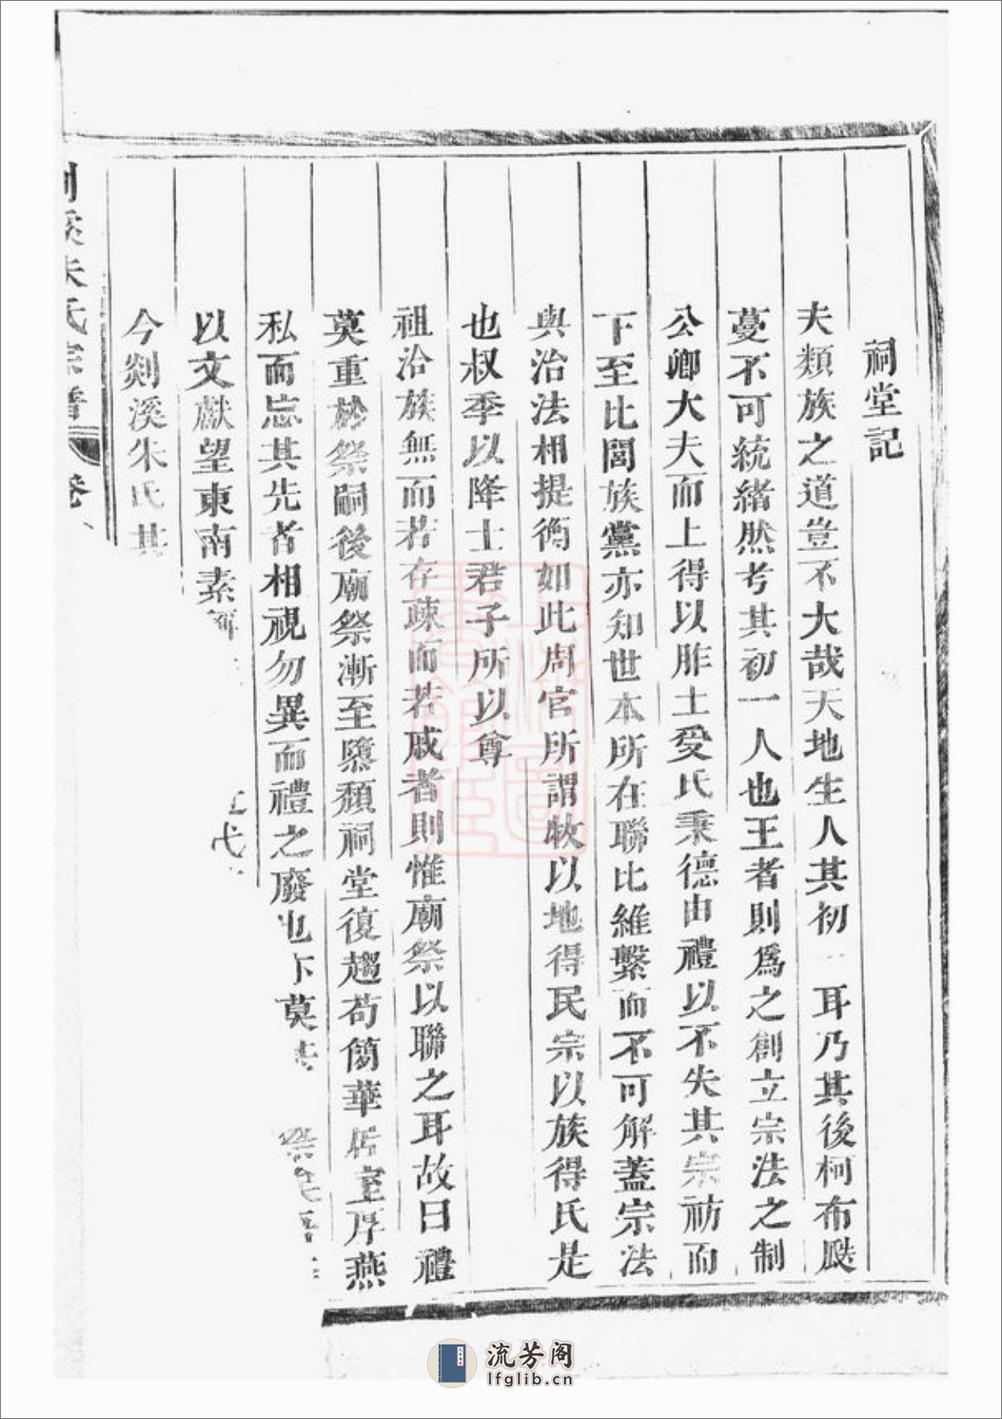 祠堂記
夫類族之道豈不大哉天地生人其初一耳乃其後柯布颷
蔓不可統緒然考其初一人也王者則爲之創立宗法之制
公卿大夫而上得以胙土受氏秉德由禮以不失其宗祊而
下至比閭族黨亦知世本所在聯比維繫而不可解蓋宗法
與治法相提衡如此周官所謂牧以地得民宗以族得氏是
也叔季以降士君子所以尊
祖洽族無而若存疎而若戚者則惟廟祭以聯之耳故曰禮
莫重於祭嗣後廟祭漸至隳頽祠堂復趨苟簡華居室厚燕
私而忘其先者相視勿異而禮之廢也下莫
以文獻望東南素
今剡溪朱氏其
溪朱氏宗譜 卷
流芳阁
lfglib.cn